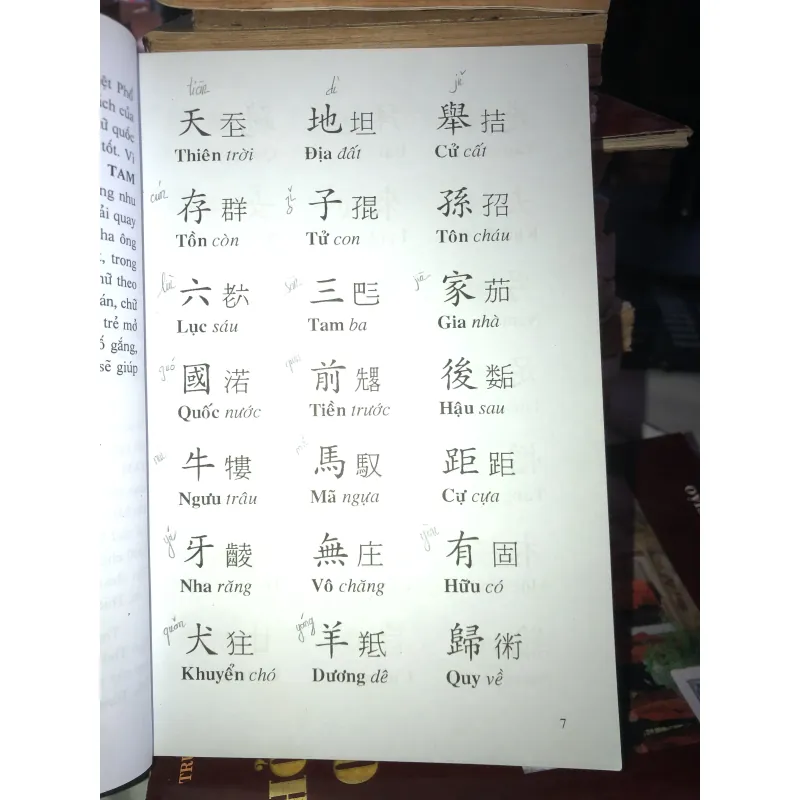 ệt Phổ
ách của
ữ quốc
tốt. Vì
TAM
ng nhu
ải quay
ha ông
, trong
hữ theo
án, chữ
trẻ mở
ố gắng,
sẽ giúp
tiān dì jǔ
天 𡗶 地 坦 舉 拮
Thiên trời Địa đất Cử cất
cún zǐ
存 群 子 𡥵 孫 𡥙
Tồn còn Tử con Tôn cháu
liù sān jiā
六 𦒹 三 𠀧 家 茹
Lục sáu Tam ba Gia nhà
guó qián
國 渃 前 𠓀 後 𢖖
Quốc nước Tiền trước Hậu sau
牛 𤛠 馬 馭 距 距
Ngưu trâu Mã ngựa Cự cựa
yá yǒu
牙 𪘵 無 庄 有 固
Nha răng Vô chăng Hữu có
quǎn yáng
犬 㹥 羊 羝 歸 術
Khuyển chó Dương dê Quy về
7
TRU